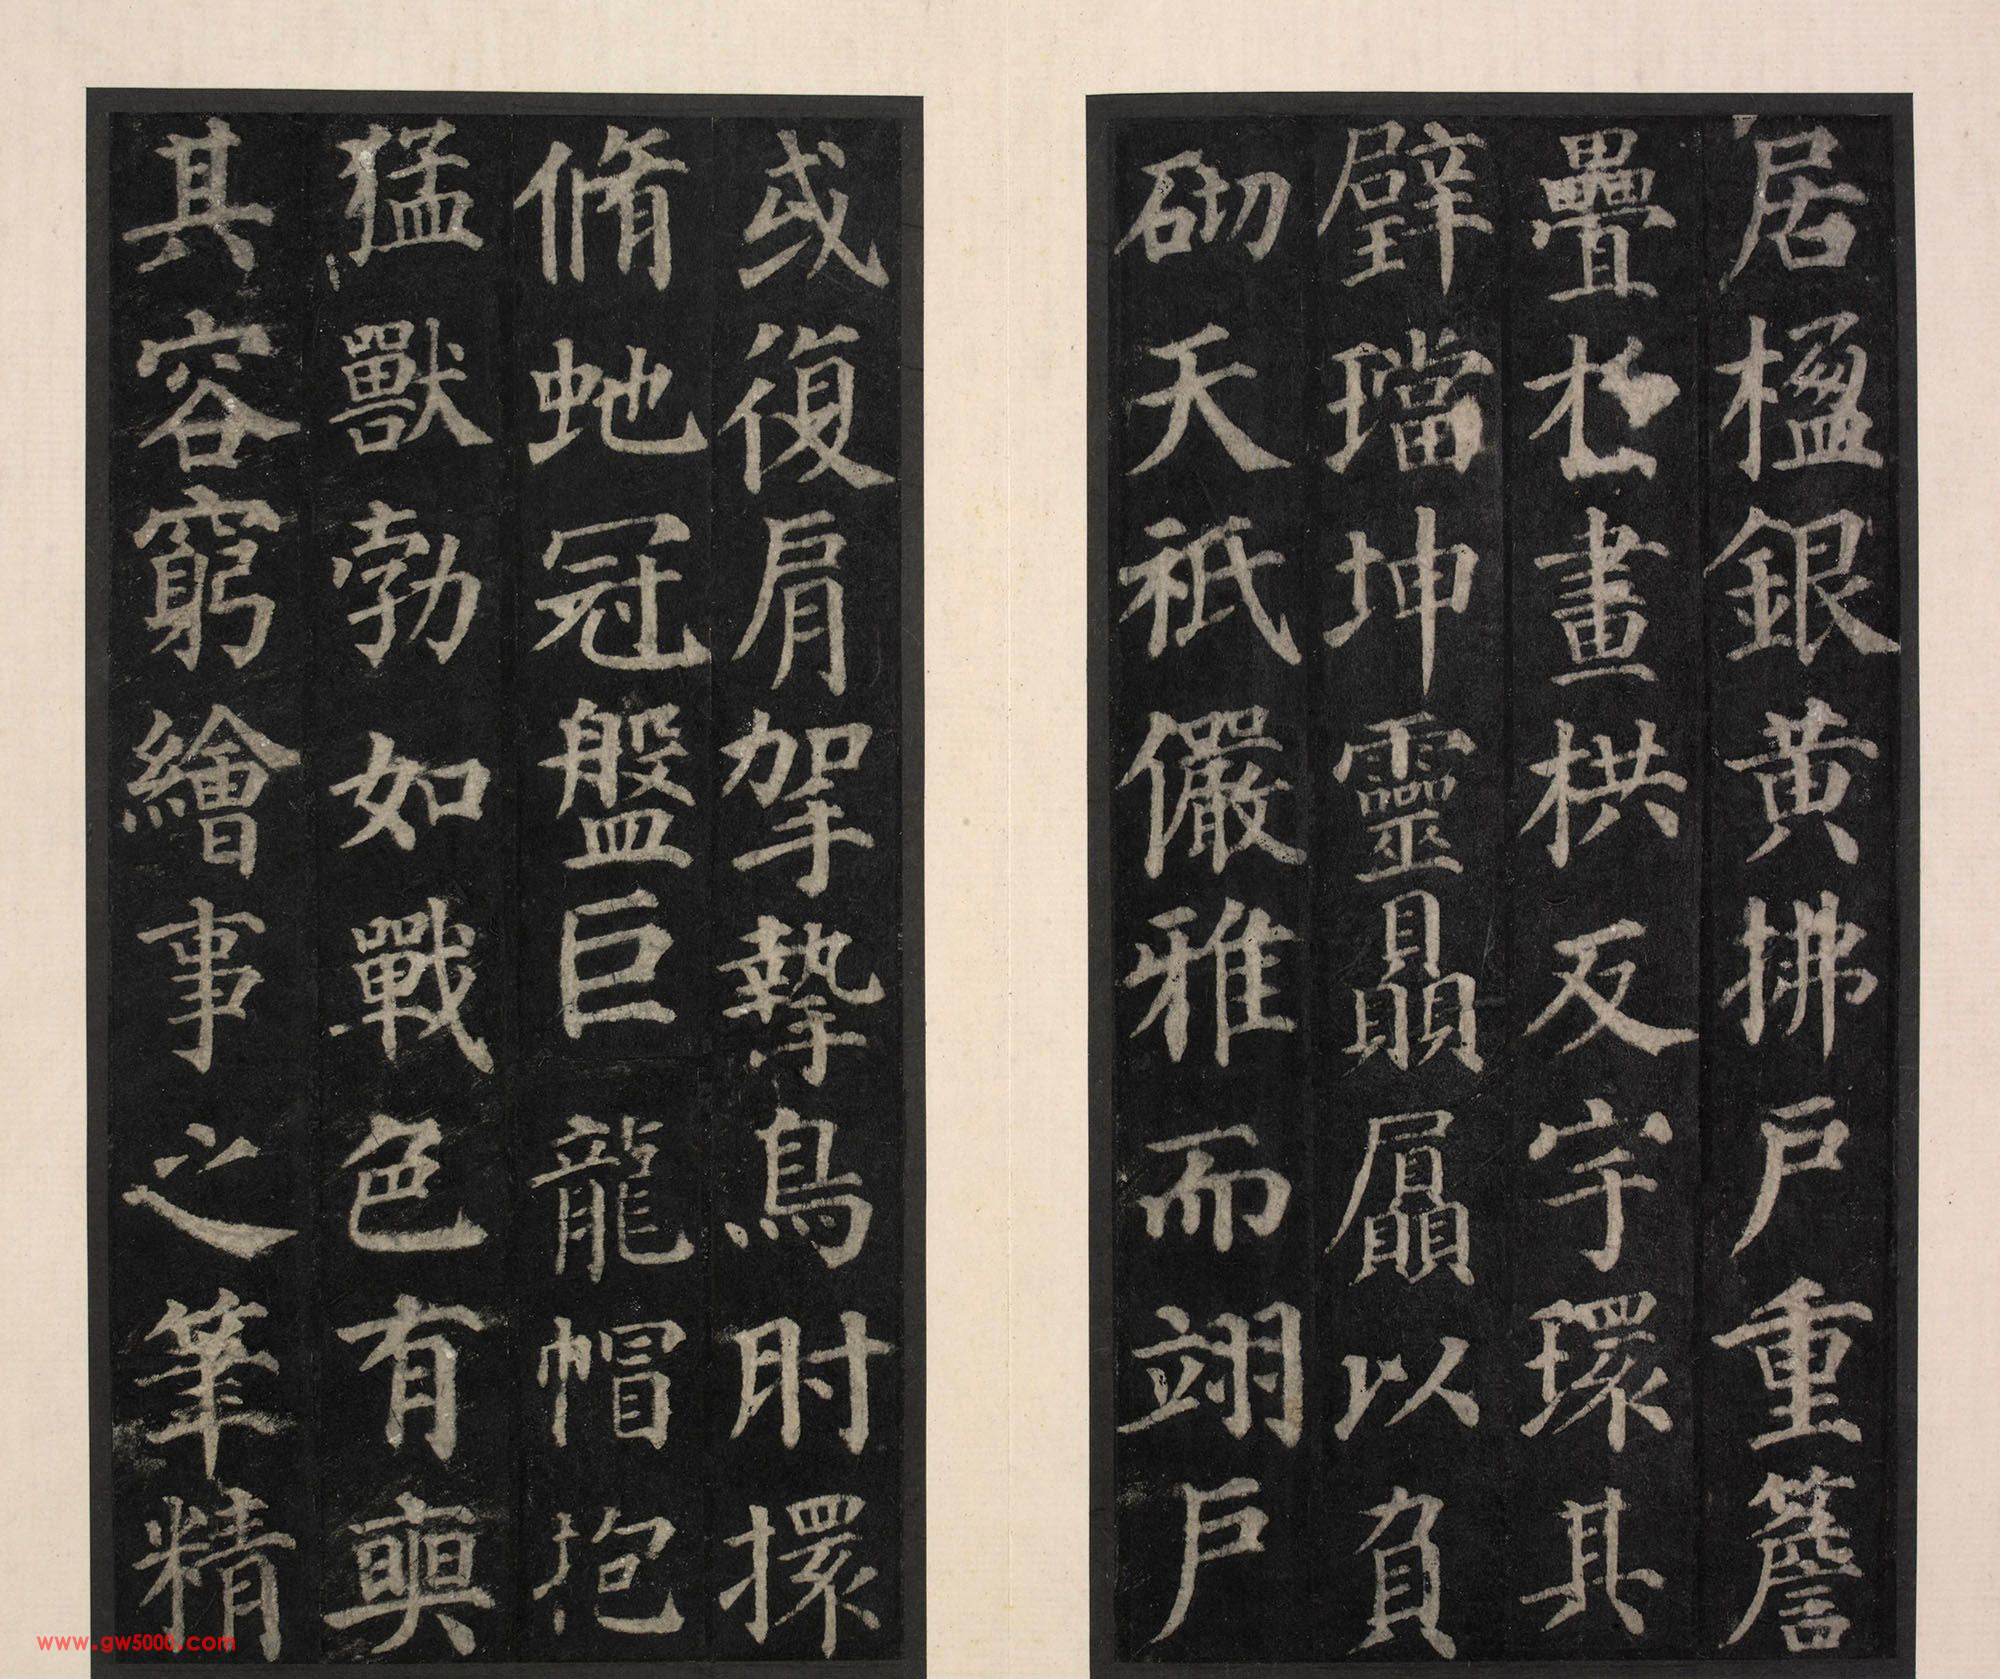 居楹銀黃拂戶重簷
疊畫栱反宇環其
璧璫坤靈贔屭以負
砌天祇儼雅而翊戶
或復肩㧝摯鳥肘擐
脩虵冠盤巨龍帽抱
猛獸勃如戰色有奭
其容窮繪事之筆精
www.gw5000.com